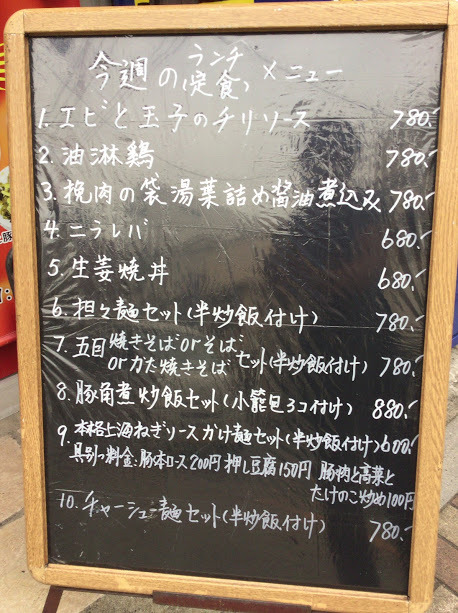 今週のランチ(定食)メニュー
1.エビと玉子のチリソース 780.-
2.油淋鶏 780.-
3.挽肉の袋湯葉詰め醤油煮込み 780.-
4.ニラレバ 680.-
5.生姜焼丼 680.-
6.担々麺セット(半炒飯付け) 780.-
7.五目焼きそばorそば
orかた焼きそばセット(半炒飯付け) 780.-
8.豚角煮炒飯セット(小籠包3コ付け) 880.-
9.本格上海ねぎソースかけ麺セット(半炒飯付け) 600.-
具別っ料金:豚本ロース200円 押し豆腐150円 豚肉と高菜と
たけのこ炒め100円
10.チャーシュー麺セット(半炒飯付け) 780.-